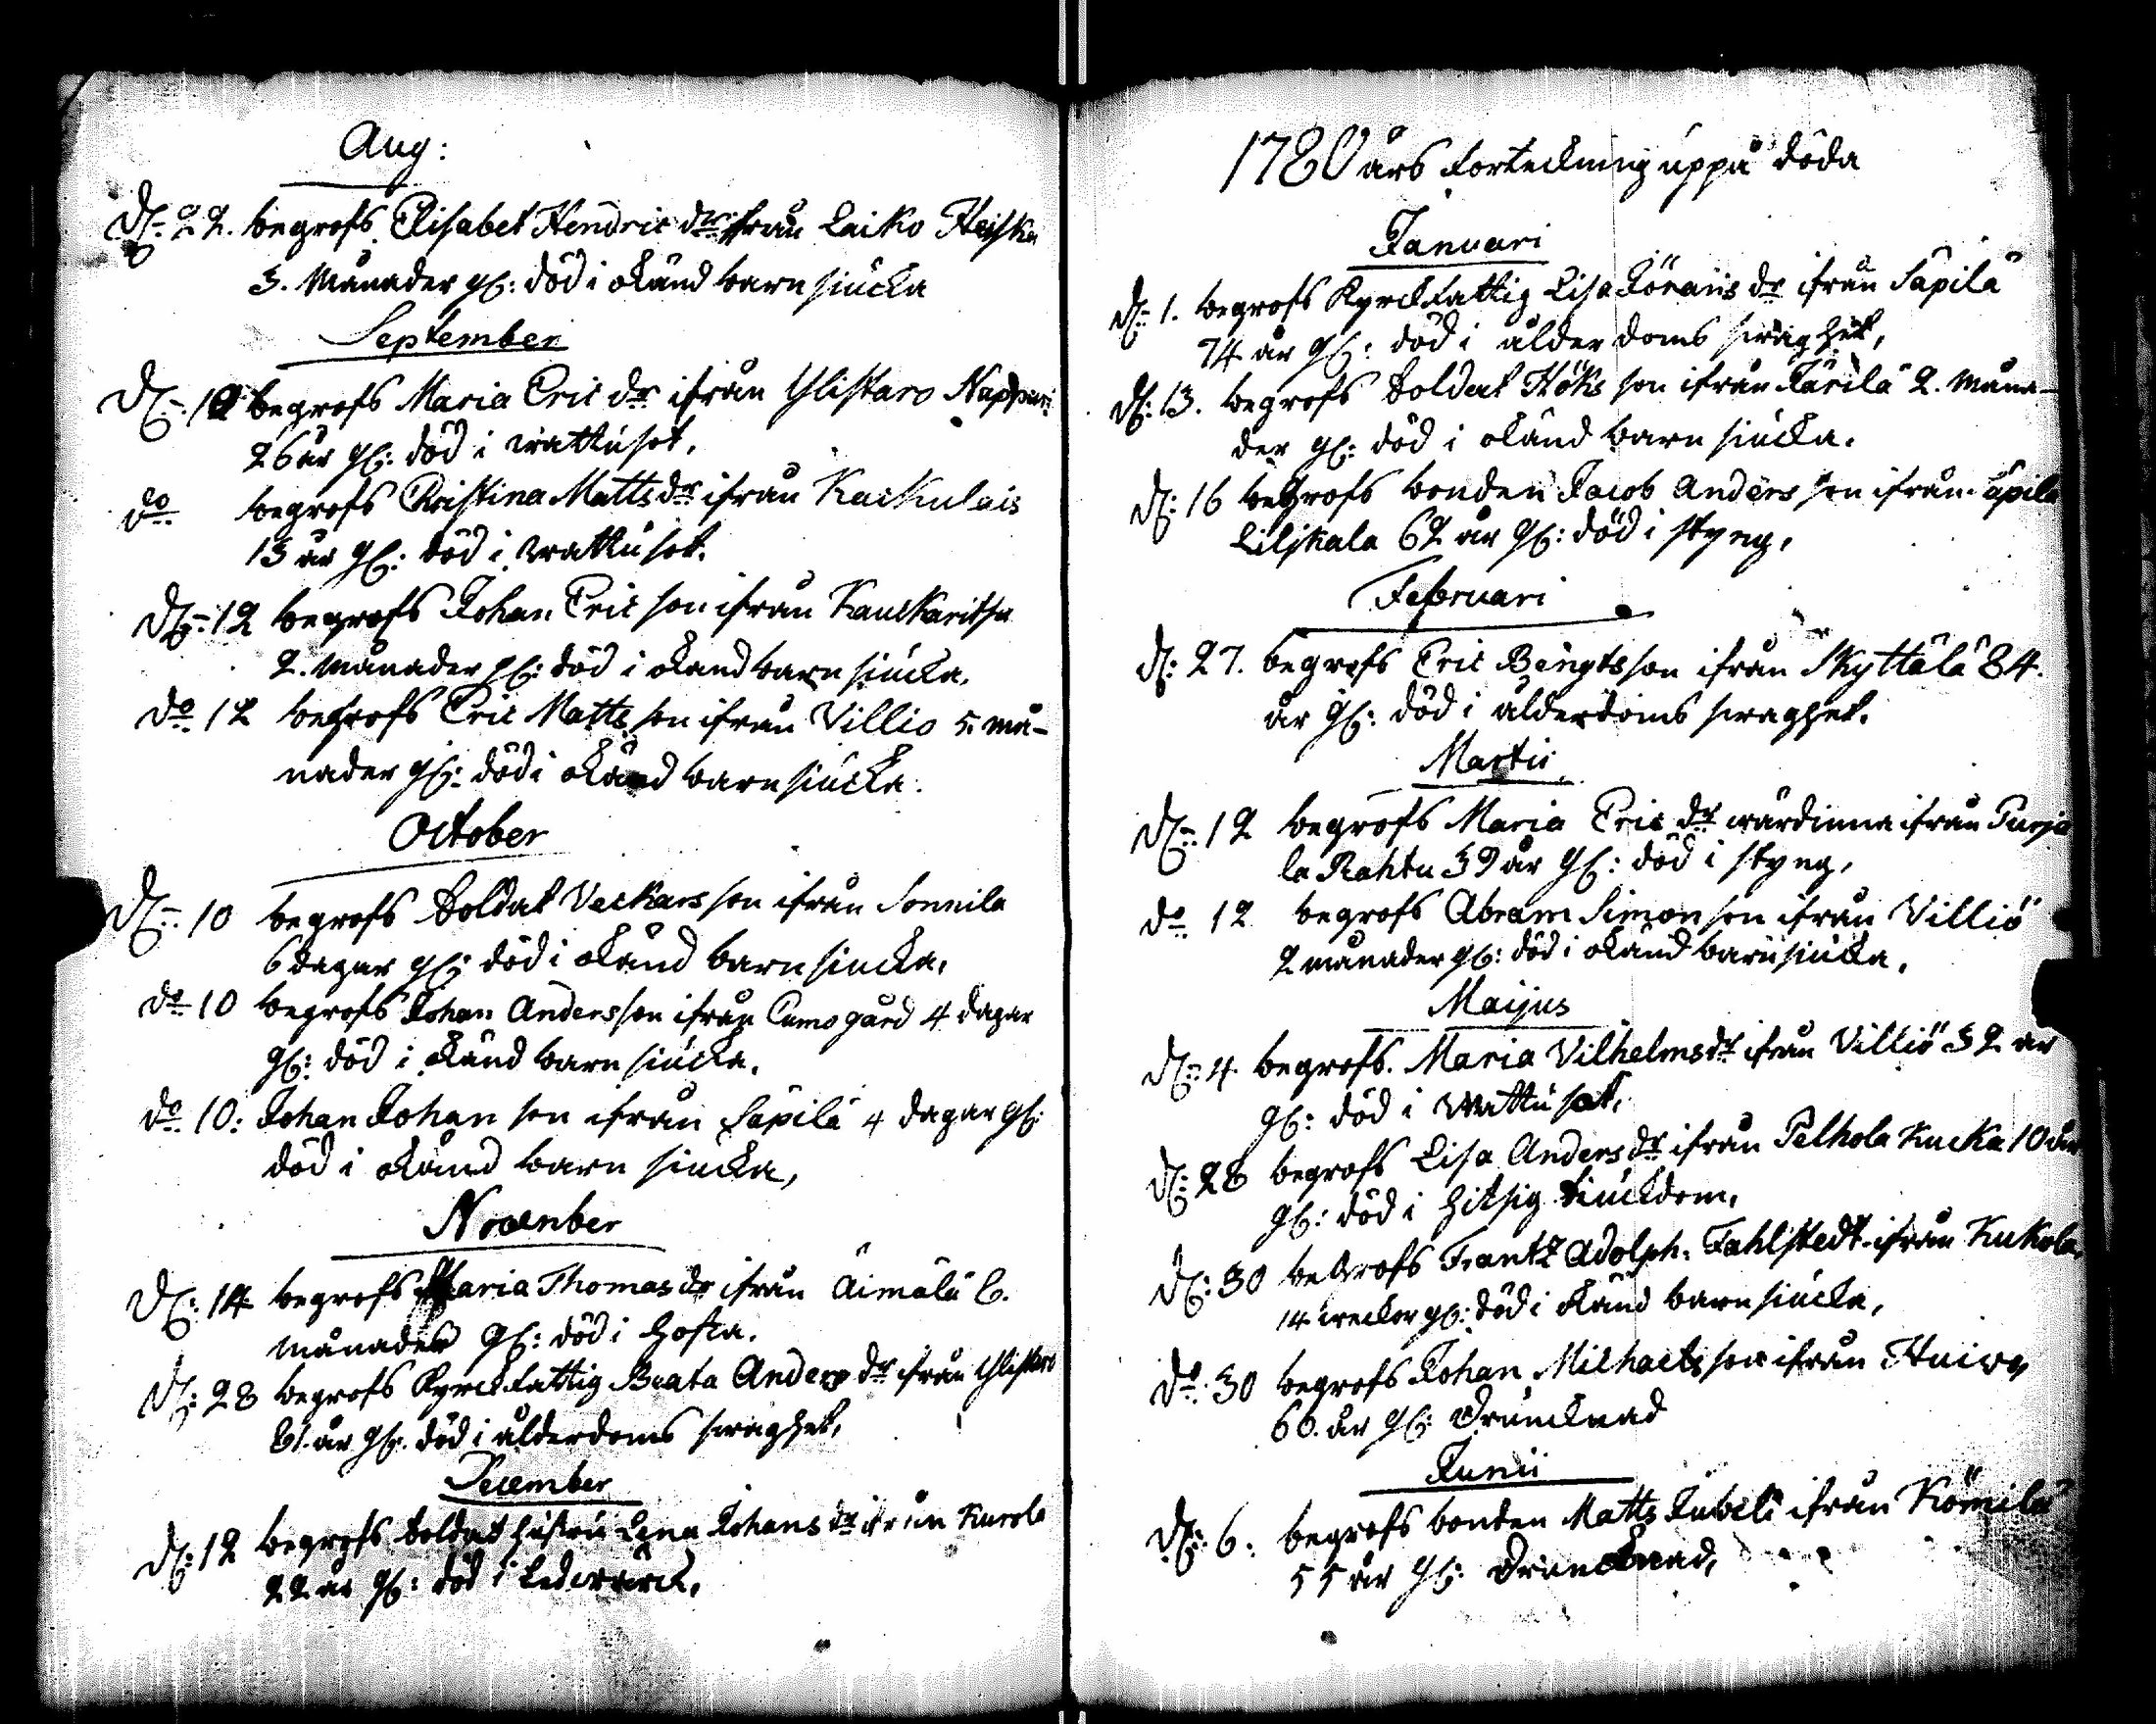 Aug:
D: 22. begrofs Elisabet Hendric dr ifrån Laiko Heiska
3. Månader gl: död i okänd barn siucka
September
D: 12 begrofs Maria Eric dr ifrån Ylistaro Nappari
26 år gl: död i wattusot.
do begrofs Christina Matts dr ifrån Kaskulais
13 år gl: död i wattusot.
D: 12 begrofs Johan Eric son ifrån Kauckaritsa
2. Månader gl: död i okand barn siucka.
do 12 begrofs Eric Matts son ifrån Villio 5 må-
nader gl: död i okänd barn siucka.
October
D: 10 begrofs Soldat Veckars son ifrån Sonnila
6 dagar gl: död i okänd barn siucka.
do 10 begrofs Johan Anders son ifrån Cumogård 4 dagar
gl: död i okänd barn siucka.
do 10: Johan Johan son ifrån Säpilä 4 dagar gl:
död i okänd barn siucka,
November
D: 14 begrofs Maria Thomas dr ifrån Äimälä 6.
månader gl: död i hosta.
D: 28 begrofs Kyrckfattig Beata Anders dr ifrån Ylistaro
81. år gl: död i ålderdoms swaghet,
December
D: 12 begrofs Soldat hustru Lena Johans dr ifrån Kurola
22 år gl: död i Ledwärck.
1780 års Forteckning uppå döda
Januari
d: 1. begrofs Kyrckfattig Lisa Jörans dr ifrån Säpilä
74 år gl: död i ålderdoms swaghet,
d: 13. begrofs Soldat Höks son ifrån Järilä 2. måna-
der gl: död i okänd barn siucka.
d: 16 begrofs bonden Jacob Anders son ifrån Säpilä
Liljkala 62 år gl: död i styng,
Februari
d: 27. begrofs Eric Bengts son ifrån Skyttälä 84.
år gl: död i ålderdoms swaghet.
Martii
D: 12 begrofs Maria Eric dr wärdinna ifrån Purja
la Rahtu 39 år gl: död i styng,
do 12 begrofs Abram Simon son ifrån Villiö
2 månader gl: död i okänd barn siucka,
Maijus
D: 4 begrofs. Maria Vilhelms dr ifrån Villiö 32 år
gl: död i Wattusot,
D: 28 begrofs Lisa Anders dr ifrån Pelhola Kucka 10 år
gl: död i hitsig siuckdom,
D: 30 begrofs Frantz Adolph: Fahlstedt ifrån Kukola
14 weckor gl: död i okänd barn siucka,
do: 30 begrofs Johan Michaels son ifrån
60. år gl: Drunknad
Junii
D: 6: begrofs bonden Matts Jubeli ifrån Kömilä
55 år gl: Drunknad,